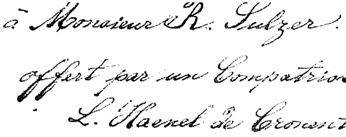 à Monsieur R. Sulzer.
offert par un Compatrio
L. Haenel de Cronent